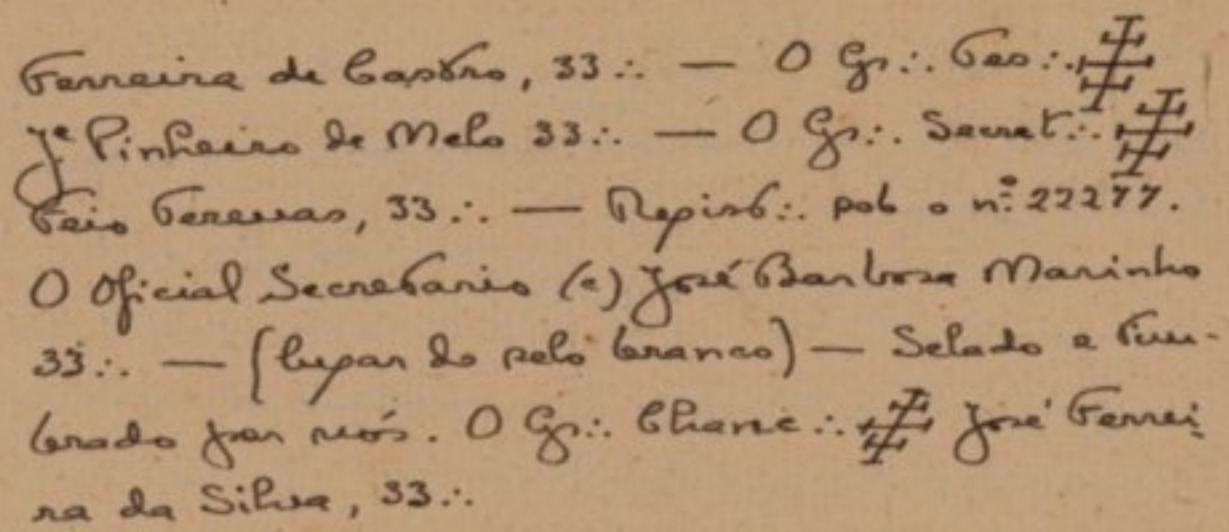 Ferreira de Castro, 33∴ — O Gr∴ Tes∴
Jé Pinheiro de Melo 33∴ — O Gr∴ Secret∴
Feio Terenas, 33∴ — Regist∴ sob o nº 22277.
O Oficial Secretario (a) José Barbosa Marinho
33∴ — (lugar do selo branco) — Selado e Tim-
brado por nós. O Gr∴ Chanc∴ José Ferrei-
ra da Silva, 33∴